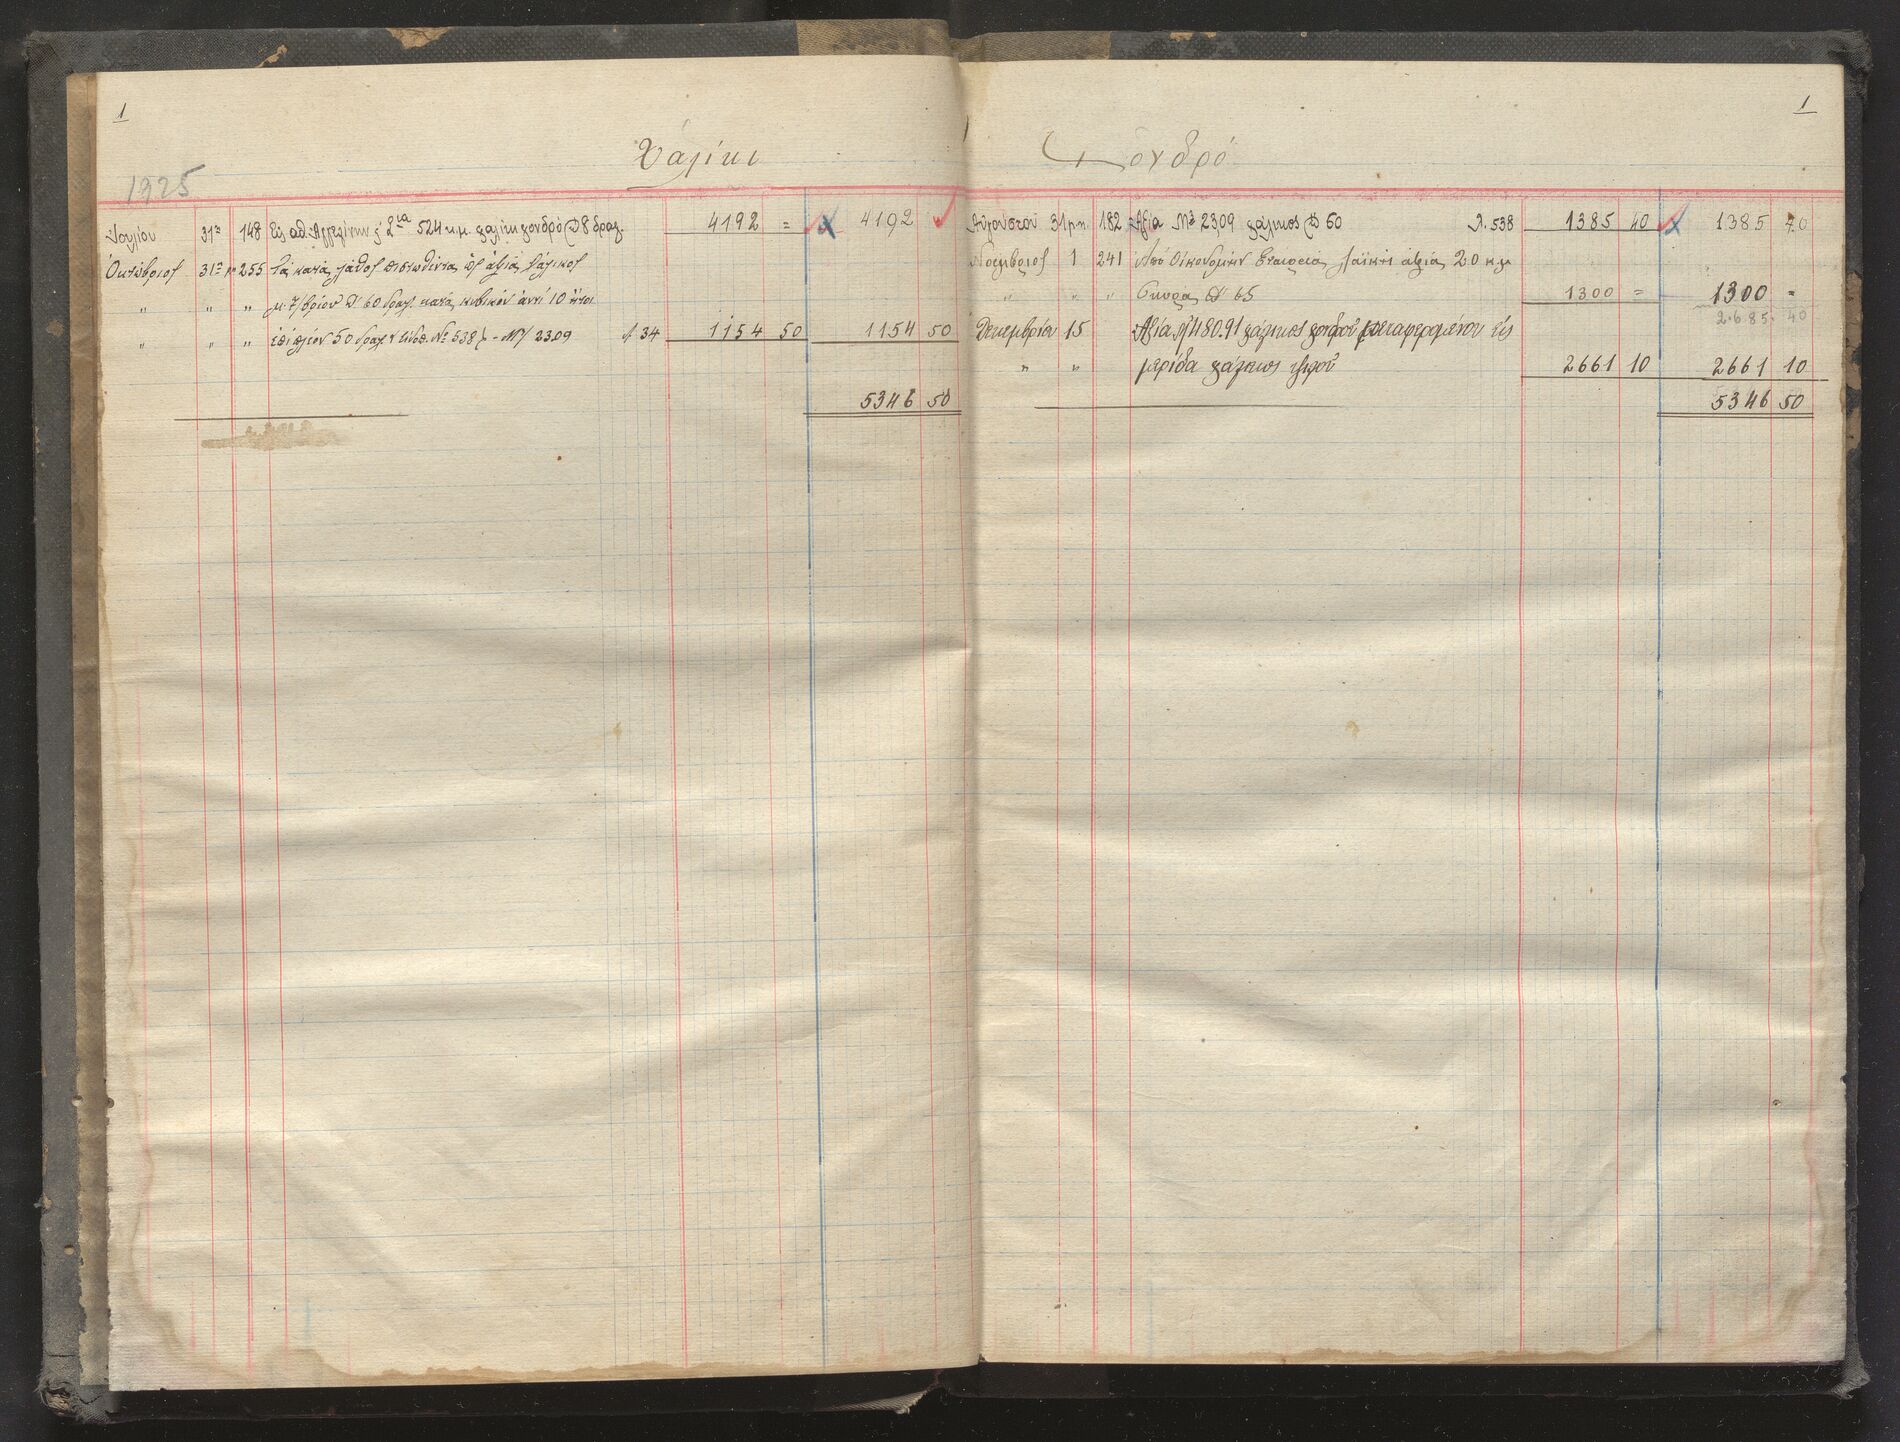 1
Χαλίκι
1925
Ἰουλίου 31 148 Εἰς 2ία 524 κ.μ. χαλίκι χονδρό @ 8 δραχ. 4192 = 4192
Ὀκτώβριος 31 255 Τά κατά λάθος πιστωθέντα ὡς ἀξία χάλικος
" " " μ. 7/βρίου @ 60 δραχ. κατά κυβικόν ἀντί 10 ἤτοι
" " " ἐπιπλέον 50 δραχ. Νο 538) - Μ/ 23.09 Λ 34 1154 50 1154 50
5346 50
1
Χονδρό
Αὐγούστου 31 182 Ἀξία Μ3 23,09 χάλικος @ 60 Λ. 538 1385 40 1385 40
Νοέμβριος 1 241 Ἀπό Οἰκοδομικήν Ἑταιρείαν ἀξία 20 κ.μ
" " " Σκύρα @ 65 1300 = 1300 =
2.685. 40
Δεκεμβρίου 15 Ἀξία 480.91 χάλικος χονδροῦ μεταφερομένου εἰς
" " μερίδα χάλικος ψιλοῦ 2661 10 2661 10
5346 50